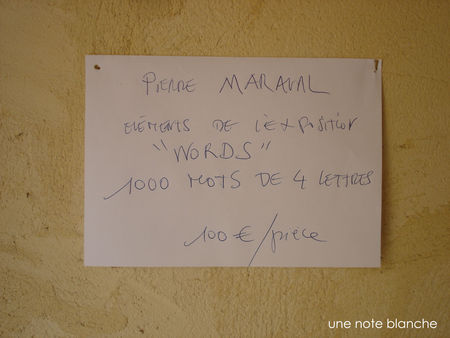 PIERRE MARAVAL
ELÉMENTS DE L'EXPOSITION
"WORDS"
1000 MOTS DE 4 LETTRES
100 €/pièce
une note blanche